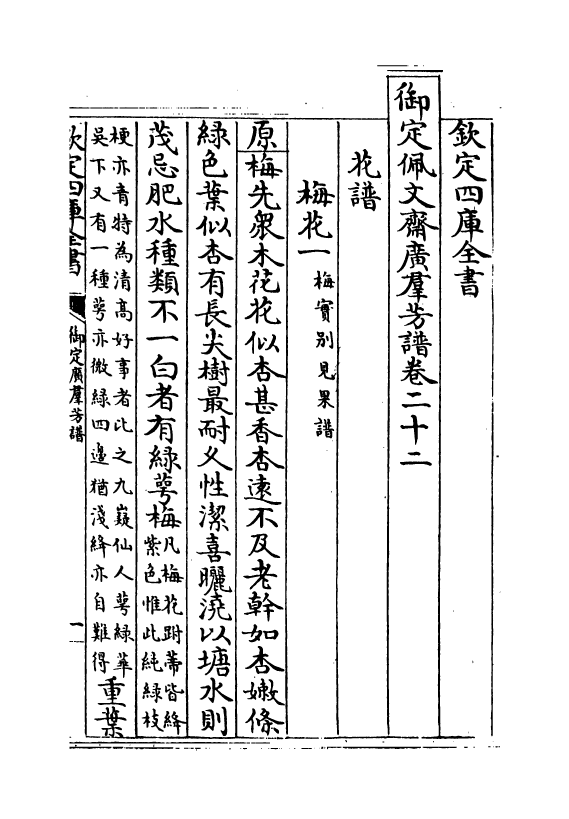 欽定四庫全書
御定佩文齋廣羣芳譜卷二十二
花譜
梅花一 梅實別見果譜
原梅先衆木花花似杏甚香杏遠不及老幹如杏嫩條
綠色葉似杏有長尖樹最耐久性潔喜曬澆以塘水則
茂忌肥水種類不一白者有綠萼梅 凡梅花跗蒂皆絳
紫色惟此純綠枝
梗亦青特為清高好事者比之九嶷仙人萼綠華
吳下又有一種萼亦微綠四邊猶淺絳亦自難得 重葉
欽定四庫全書 御定廣羣芳譜 一